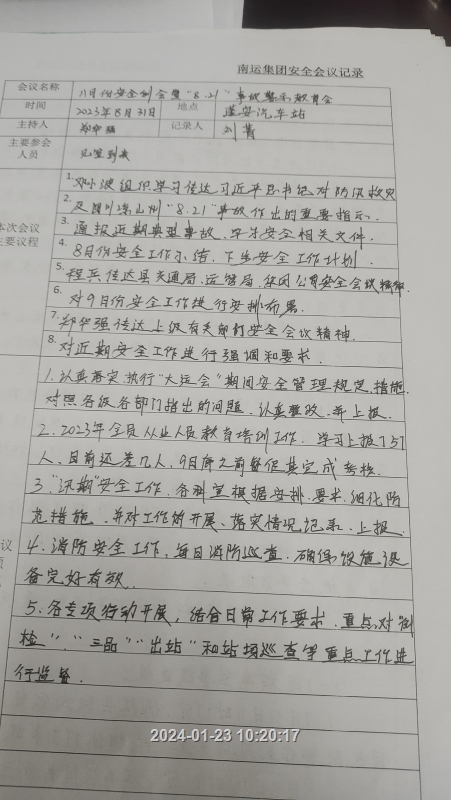 南运集团安全会议记录
会议名称 八月份安全例会暨"8.21"事故警示教育会
时间 2023年8月31日 地点 蓬安汽车站
主持人 郑华强 记录人 刘菁
主要参会
人员 见签到表
本次会议
主要议程
1.邓小波组织学习传达习近平总书记对防汛救灾
2.及四川凉山州"8.21"事故作出的重要指示.
3.通报近期典型事故、学习安全相关文件.
4.8月份安全工作小结、下步安全工作计划.
5.程兵传达县交通局、运管局、集团公司安全会议精神.
6.对9月份安全工作进行安排布署.
7.郑华强传达上级有关部门安全会议精神.
8.对近期安全工作进行强调和要求.
1.认真落实执行"大运会"期间安全管理规定、措施.
对照各级各部门指出的问题、认真整改、并上报.
2.2023年全员从业人员教育培训工作、学习上报了51
人、目前还差几人、9月底之前督促其完成考核.
3."汛期"安全工作、各科室根据安排、要求、细化防
范措施、并对工作的开展、落实情况记录、上报.
4.消防安全工作、每日消防巡查、确保设施设
备完好有效.
5.各专项行动开展,结合日常工作要求、重点对"例
检"、"三品""出站"和站场巡查等重点工作进
行监督.
议
2024-01-23 10:20:17